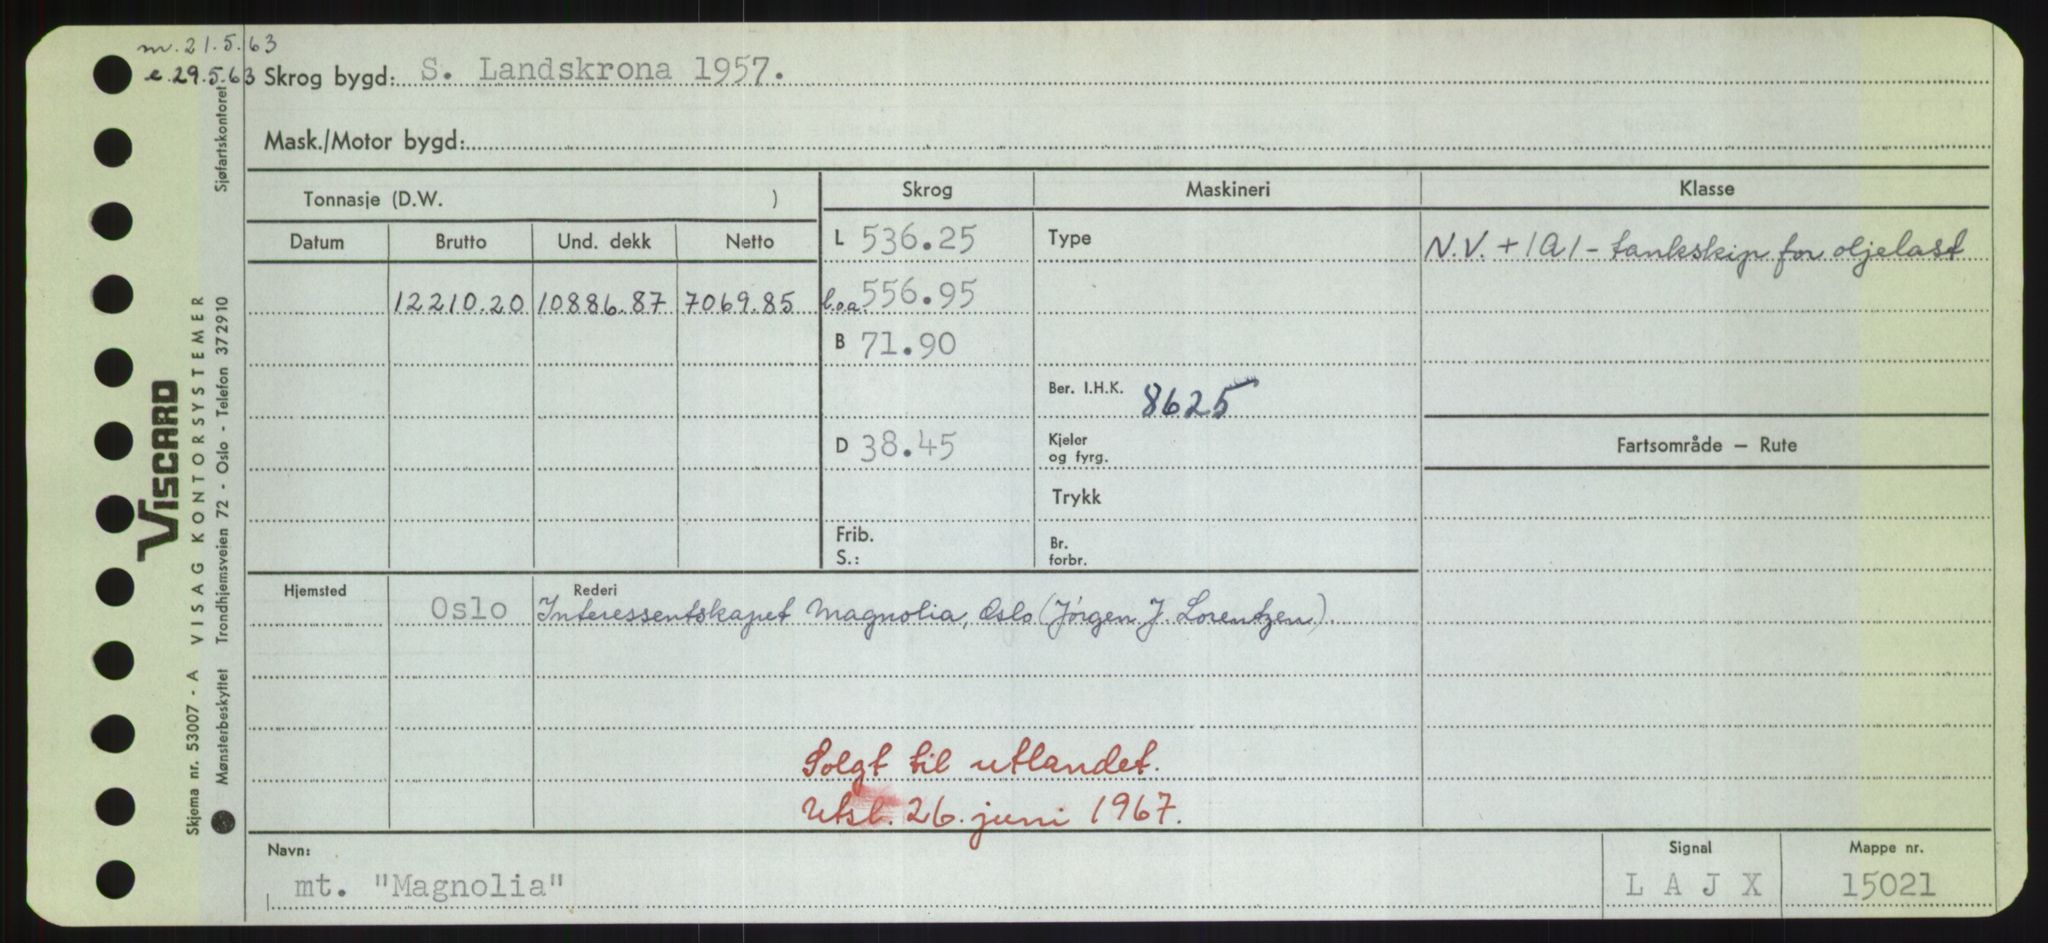 m. 21.5.63
e. 29.5.63 Skrog bygd: S. Landskrona 1957.
Mask./Motor bygd:
Tonnasje (D.W. ) Skrog Maskineri Klasse
Datum Brutto Und. dekk Netto L 536.25 Type N.V. + 1A1 - tankskip for oljelast
12210.20 10886.87 7069.85 l.o.a. 556.95
B 71.90
Ber. I.H.K. 8625
D 38.45 Kjeler og fyrg. Fartsområde – Rute
Trykk
Frib. Br.
S.: forbr.
Hjemsted Oslo Rederi Interessentskapet Magnolia, Oslo (Jörgen J. Lorentzen).
Solgt til utlandet.
Utsl. 26. juni 1967.
Navn: Signal Mappe nr.
mt. "Magnolia" L A J X 15021
VISCARD
Skjema nr. 53007 - A VISAG KONTORSYSTEMER
Mønsterbeskyttet Trondhjemsveien 72 - Oslo - Telefon 372910 Sjøfartskontoret